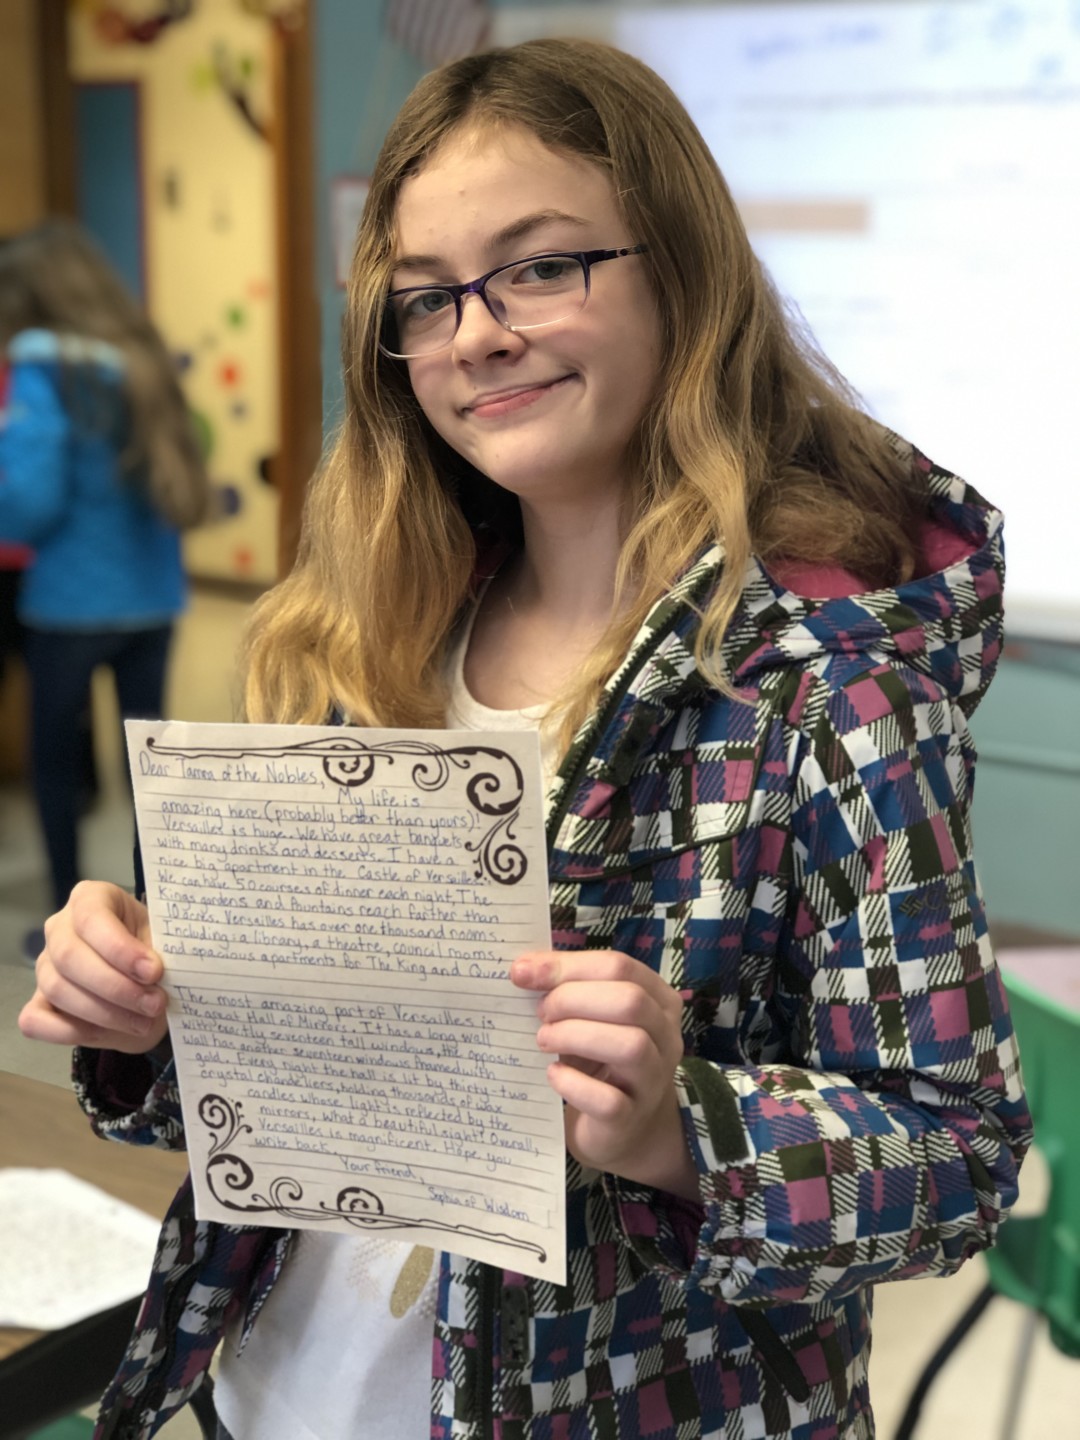 Dear Tamra of the Nobles,
My life is
amazing here (probably better than yours)!
Versailles is huge. We have great banquets
with many drinks and desserts. I have a
nice big apartment in the Castle of Versailles.
We can have 50 courses of dinner each night, The
Kings gardens and fountains reach farther than
10 acres. Versailles has over one thousand rooms.
Including: a library, a theatre, council rooms,
and spacious apartments for The King and Queen
The most amazing part of Versailles is
the great Hall of Mirrors. It has a long wall
with exactly seventeen tall windows, the opposite
wall has another seventeen windows framed with
gold. Every night the hall is lit by thirty-two
crystal chandeliers, holding thousands of wax
candles whose light is reflected by the
mirrors, what a beautiful sight! Overall,
Versailles is magnificent. Hope you
write back.
Your friend,
Sophia of Wisdom